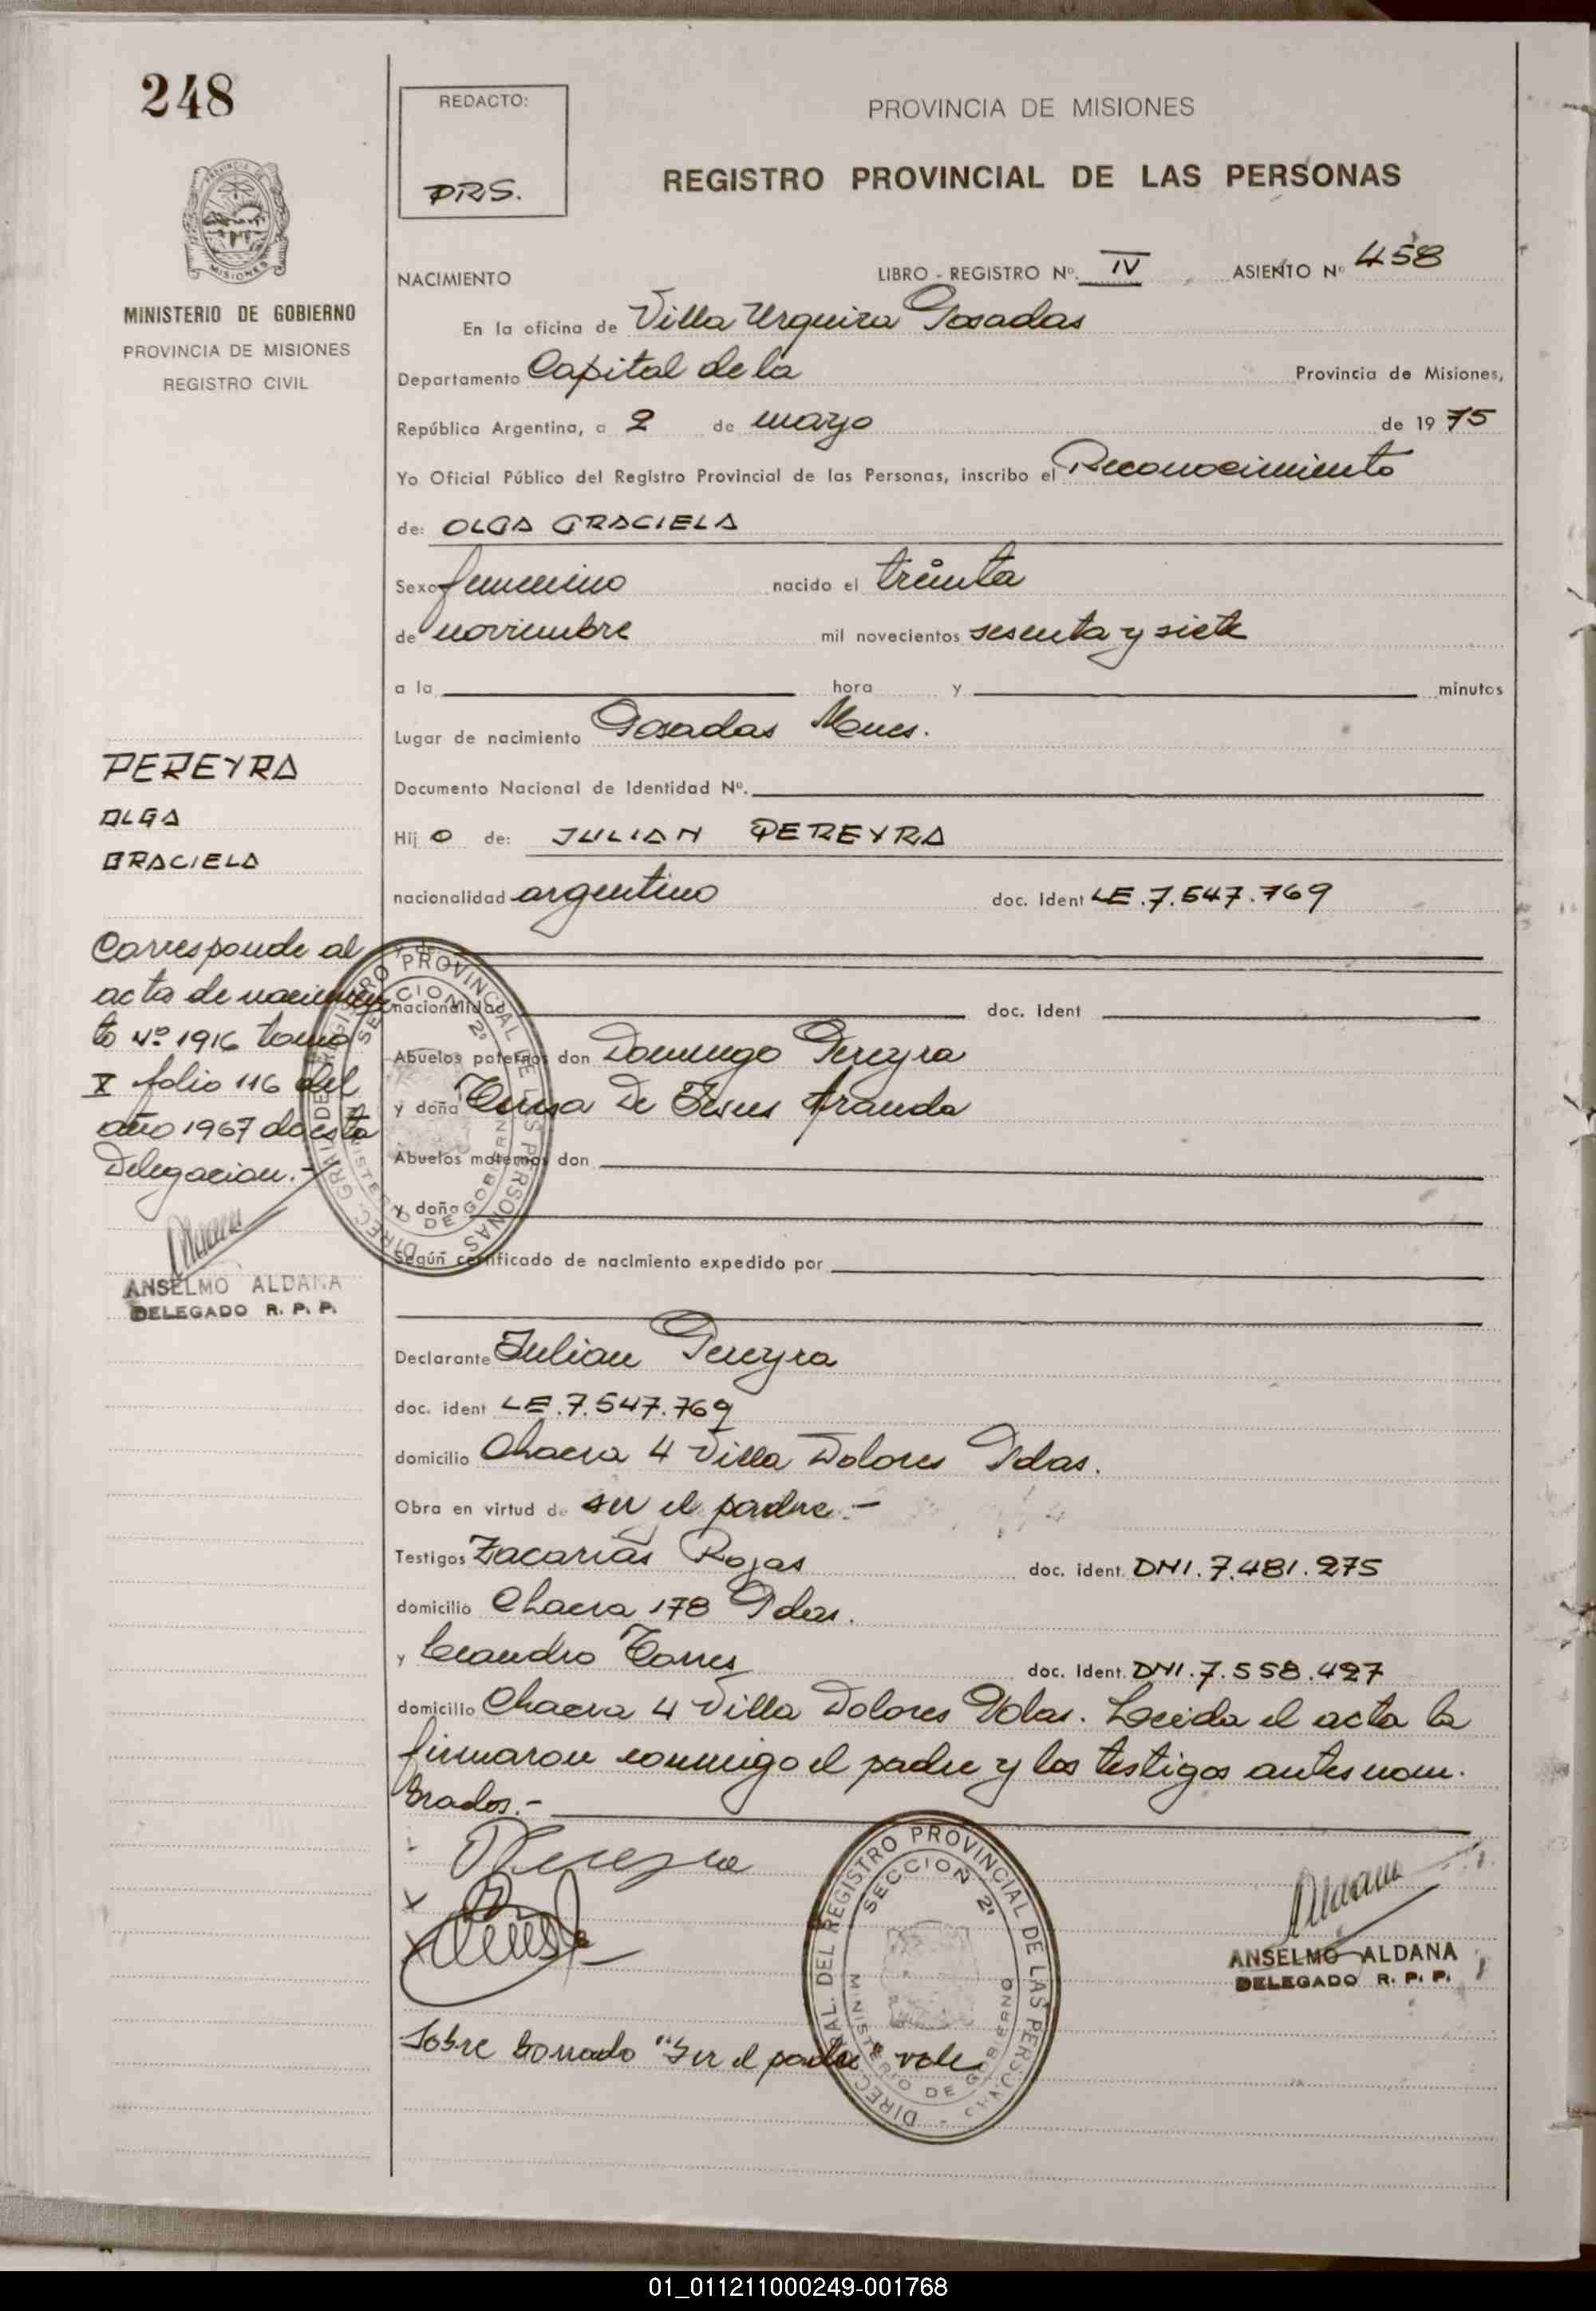 248
REDACTO:
PRS.
PROVINCIA DE MISIONES
REGISTRO PROVINCIAL DE LAS PERSONAS
PROVINCIA DE
MISIONES
MINISTERIO DE GOBIERNO
PROVINCIA DE MISIONES
REGISTRO CIVIL
NACIMIENTO
LIBRO - REGISTRO Nº. IV ASIENTO Nº 458
En la oficina de Villa Urquiza Posadas
Departamento Capital de la Provincia de Misiones,
República Argentina, a 2 de mayo de 19 75
Yo Oficial Público del Registro Provincial de las Personas, inscribo el Reconocimiento
de: OLGA GRACIELA
Sexo femenino nacido el treinta
de noviembre mil novecientos sesenta y siete
a la hora y minutos
Lugar de nacimiento Posadas Mnes.
Documento Nacional de Identidad Nº.
Hij o de: JULIAN PEREYRA
nacionalidad argentino doc. Ident LE.7.547.769
y de:
nacionalidad doc. Ident
Abuelos paternos don Domingo Pereyra
y doña Teresa De Jesus Aranda
Abuelos maternos don
y doña
Según certificado de nacimiento expedido por
PEREYRA
OLGA
GRACIELA
Corresponde al
acta de nacimien
to Nº 1916 tomo
X folio 116 del
año 1967 de esta
Delegacion.-
Aldana
ANSELMO ALDANA
DELEGADO R. P. P.
DIREC. GRAL. DEL REGISTRO PROVINCIAL DE LAS PERSONAS
SECCION 2ª
MINISTERIO DE GOBIERNO
Declarante Julian Pereyra
doc. ident LE.7.547.769
domicilio Chacra 4 Villa Dolores Pdas.
Obra en virtud de ser el padre.-
Testigos Zacarias Rojas doc. ident. DNI.7.481.275
domicilio Chacra 178 Pdas.
y Leandro Torres doc. Ident. DNI.7.558.427
domicilio Chacra 4 Villa Dolores Pdas. Leida el acta la
firmaron conmigo el padre y los testigos antes nom.
brados.-
Pereyra
DIREC. GRAL. DEL REGISTRO PROVINCIAL DE LAS PERSONAS
SECCION 2ª
MINISTERIO DE GOBIERNO
Aldana
ANSELMO ALDANA
DELEGADO R. P. P.
Sobre borrado "Ser el padre" vale
01_011211000249-001768